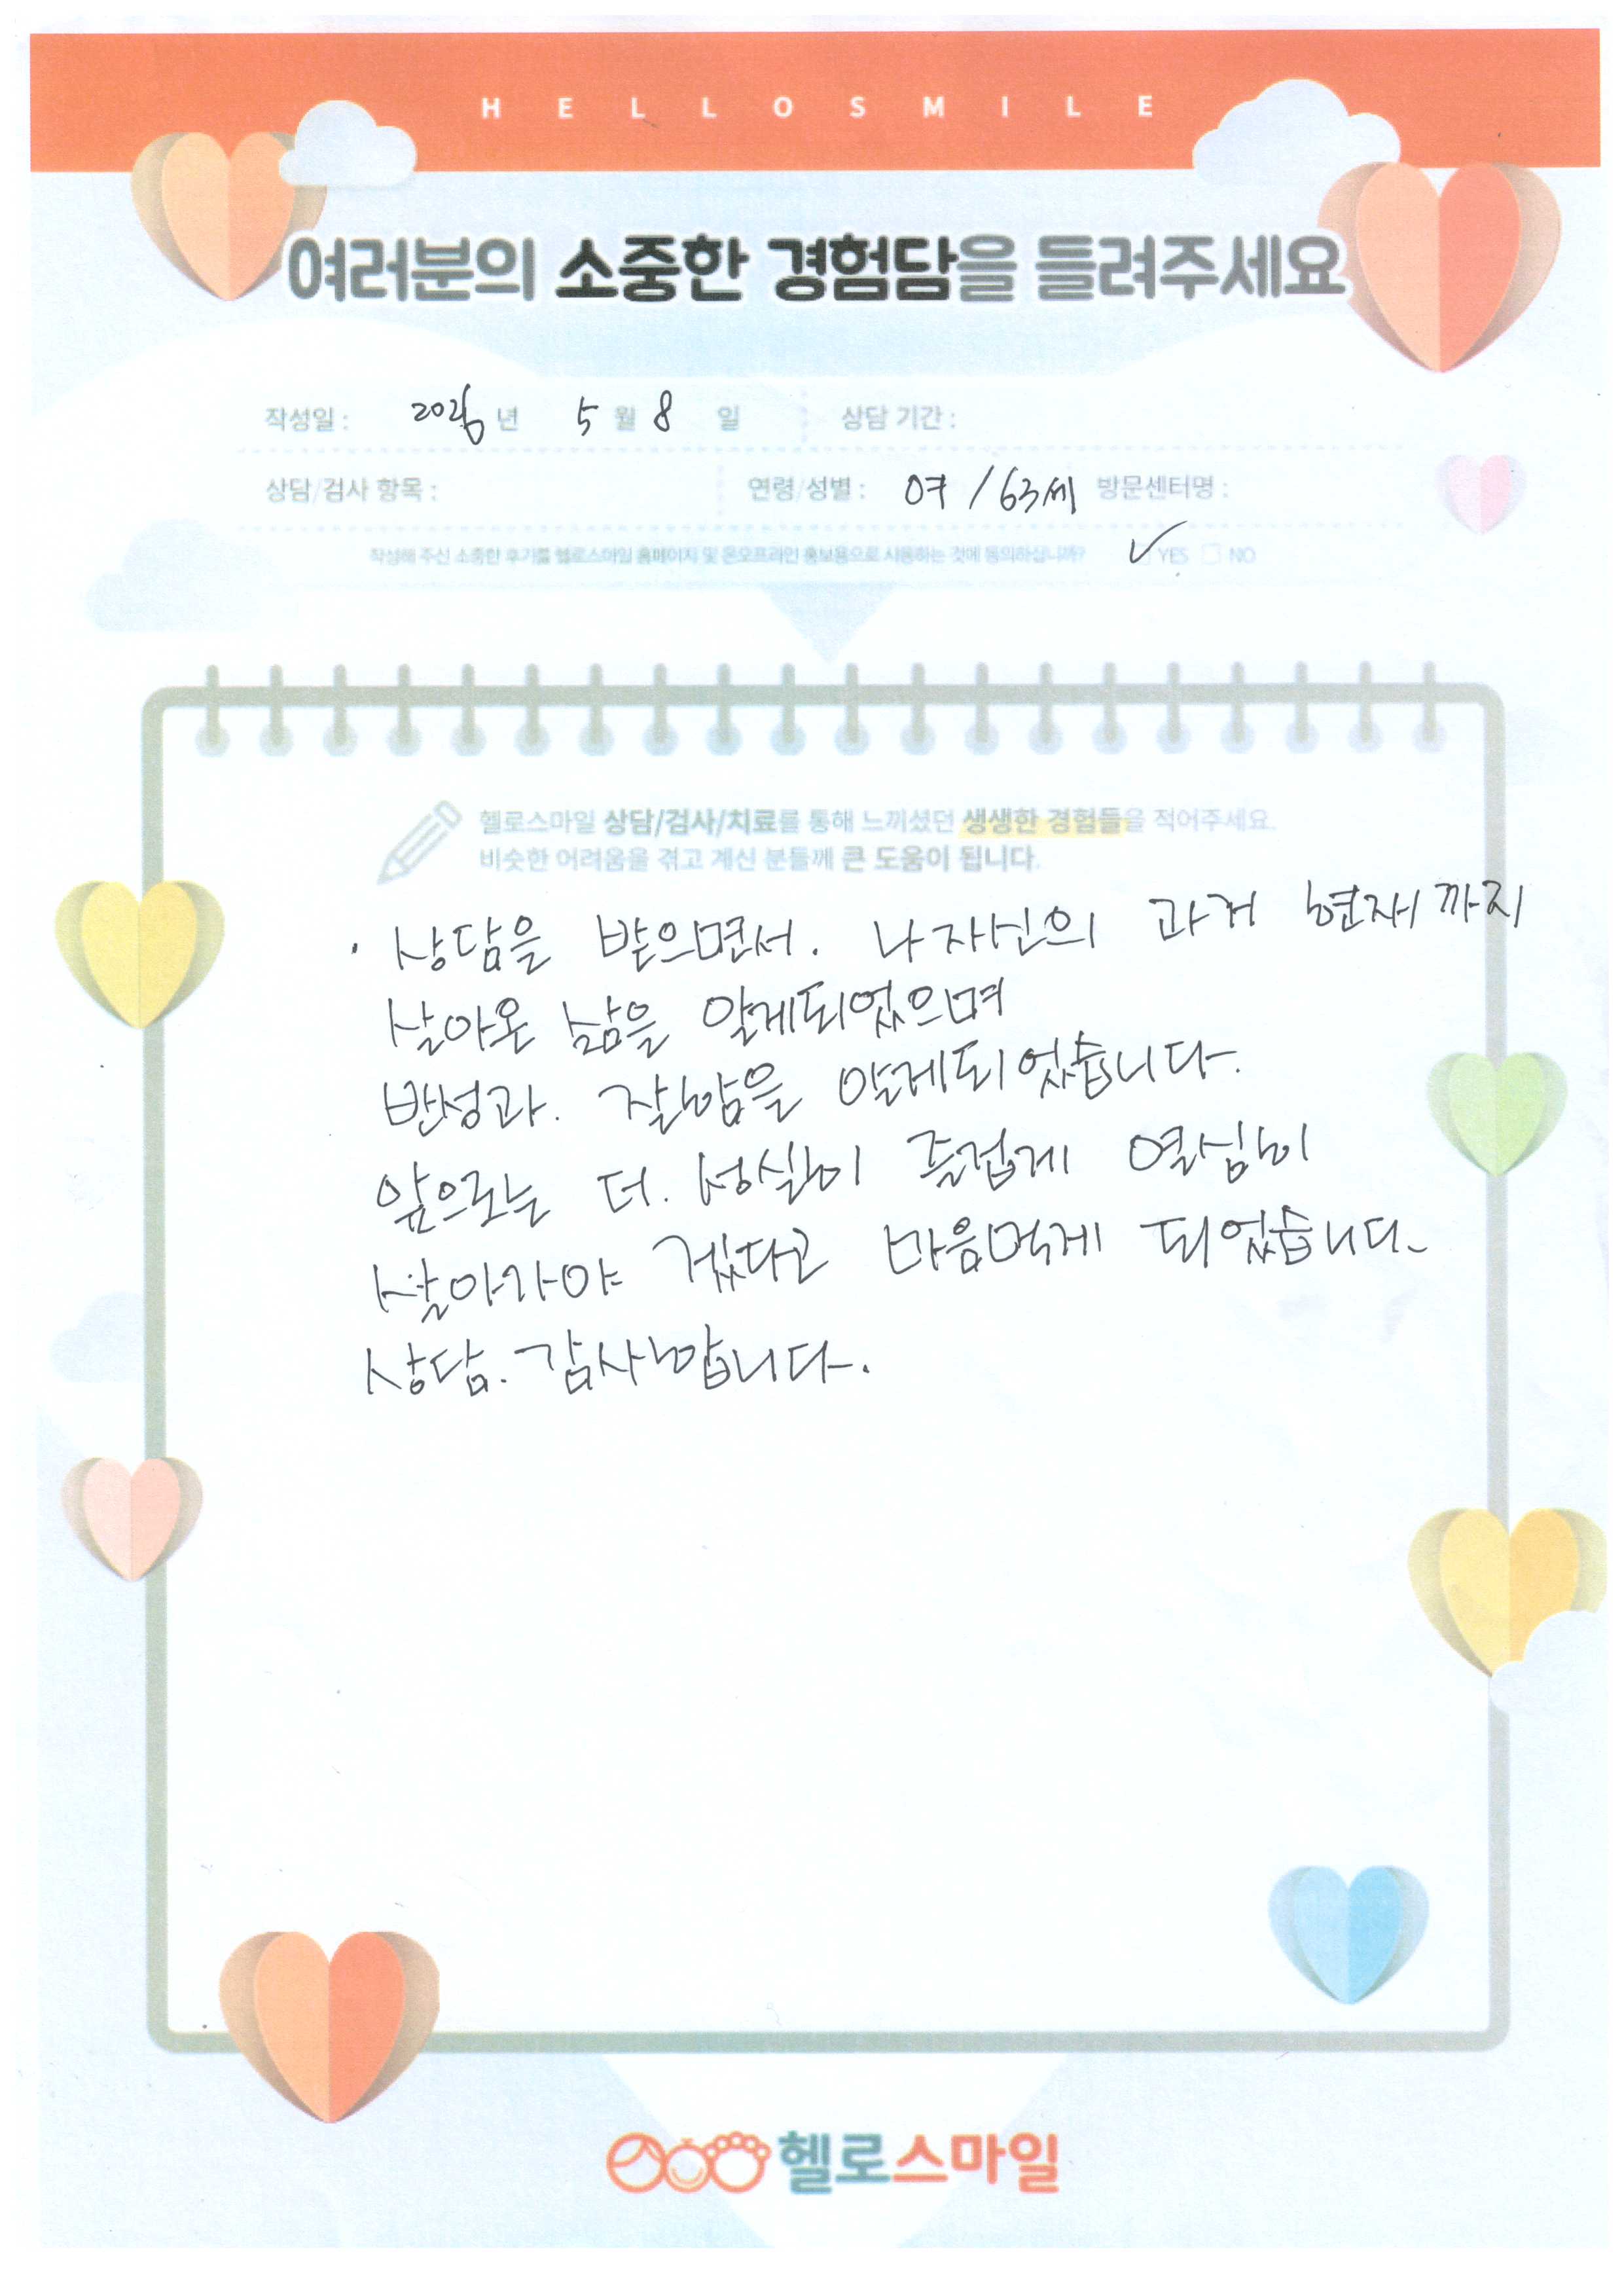 HELLOSMILE
여러분의 소중한 경험담을 들려주세요
작성일 : 2026 년 5 월 8 일 상담 기간 :
상담/검사 항목 : 연령/성별 : 여 / 63세 방문센터명 :
작성해 주신 소중한 후기를 헬로스마일 홈페이지 및 온오프라인 홍보용으로 사용하는 것에 동의하십니까? ✓ YES □ NO
헬로스마일 상담/검사/치료를 통해 느끼셨던 생생한 경험들을 적어주세요.
비슷한 어려움을 겪고 계신 분들께 큰 도움이 됩니다.
· 상담을 받으면서. 나 자신의 과거 현재까지
살아온 삶을 알게되었으며
반성과. 잘함을 알게되었습니다.
앞으로는 더. 성실히 즐겁게 열심히
살아가야 겠다고 마음먹게 되었습니다.
상담. 감사합니다.
헬로스마일